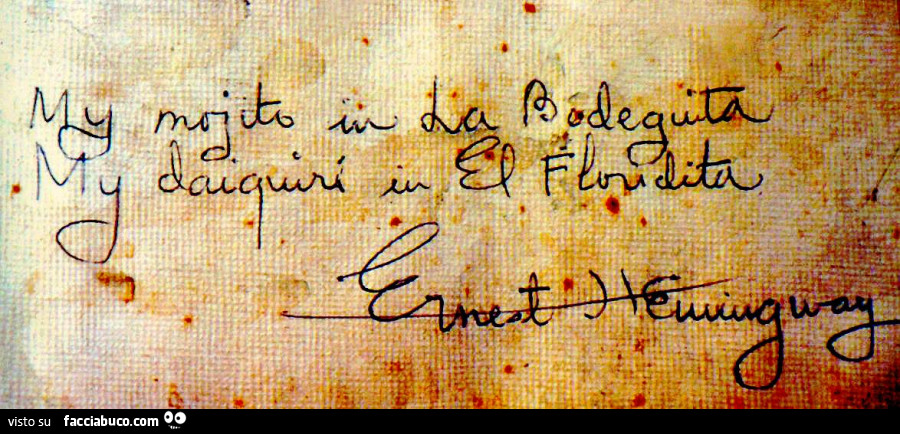 My mojito in La Bodeguita
My daiquirí in El Floridita
Ernest Hemingway
visto su facciabuco.com